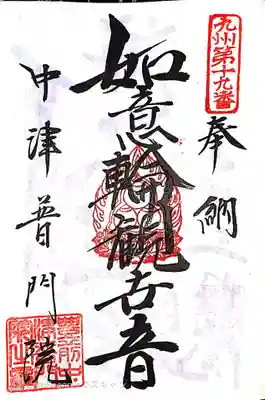 九州第十九番
奉納
如意輪観世音
中津普門院